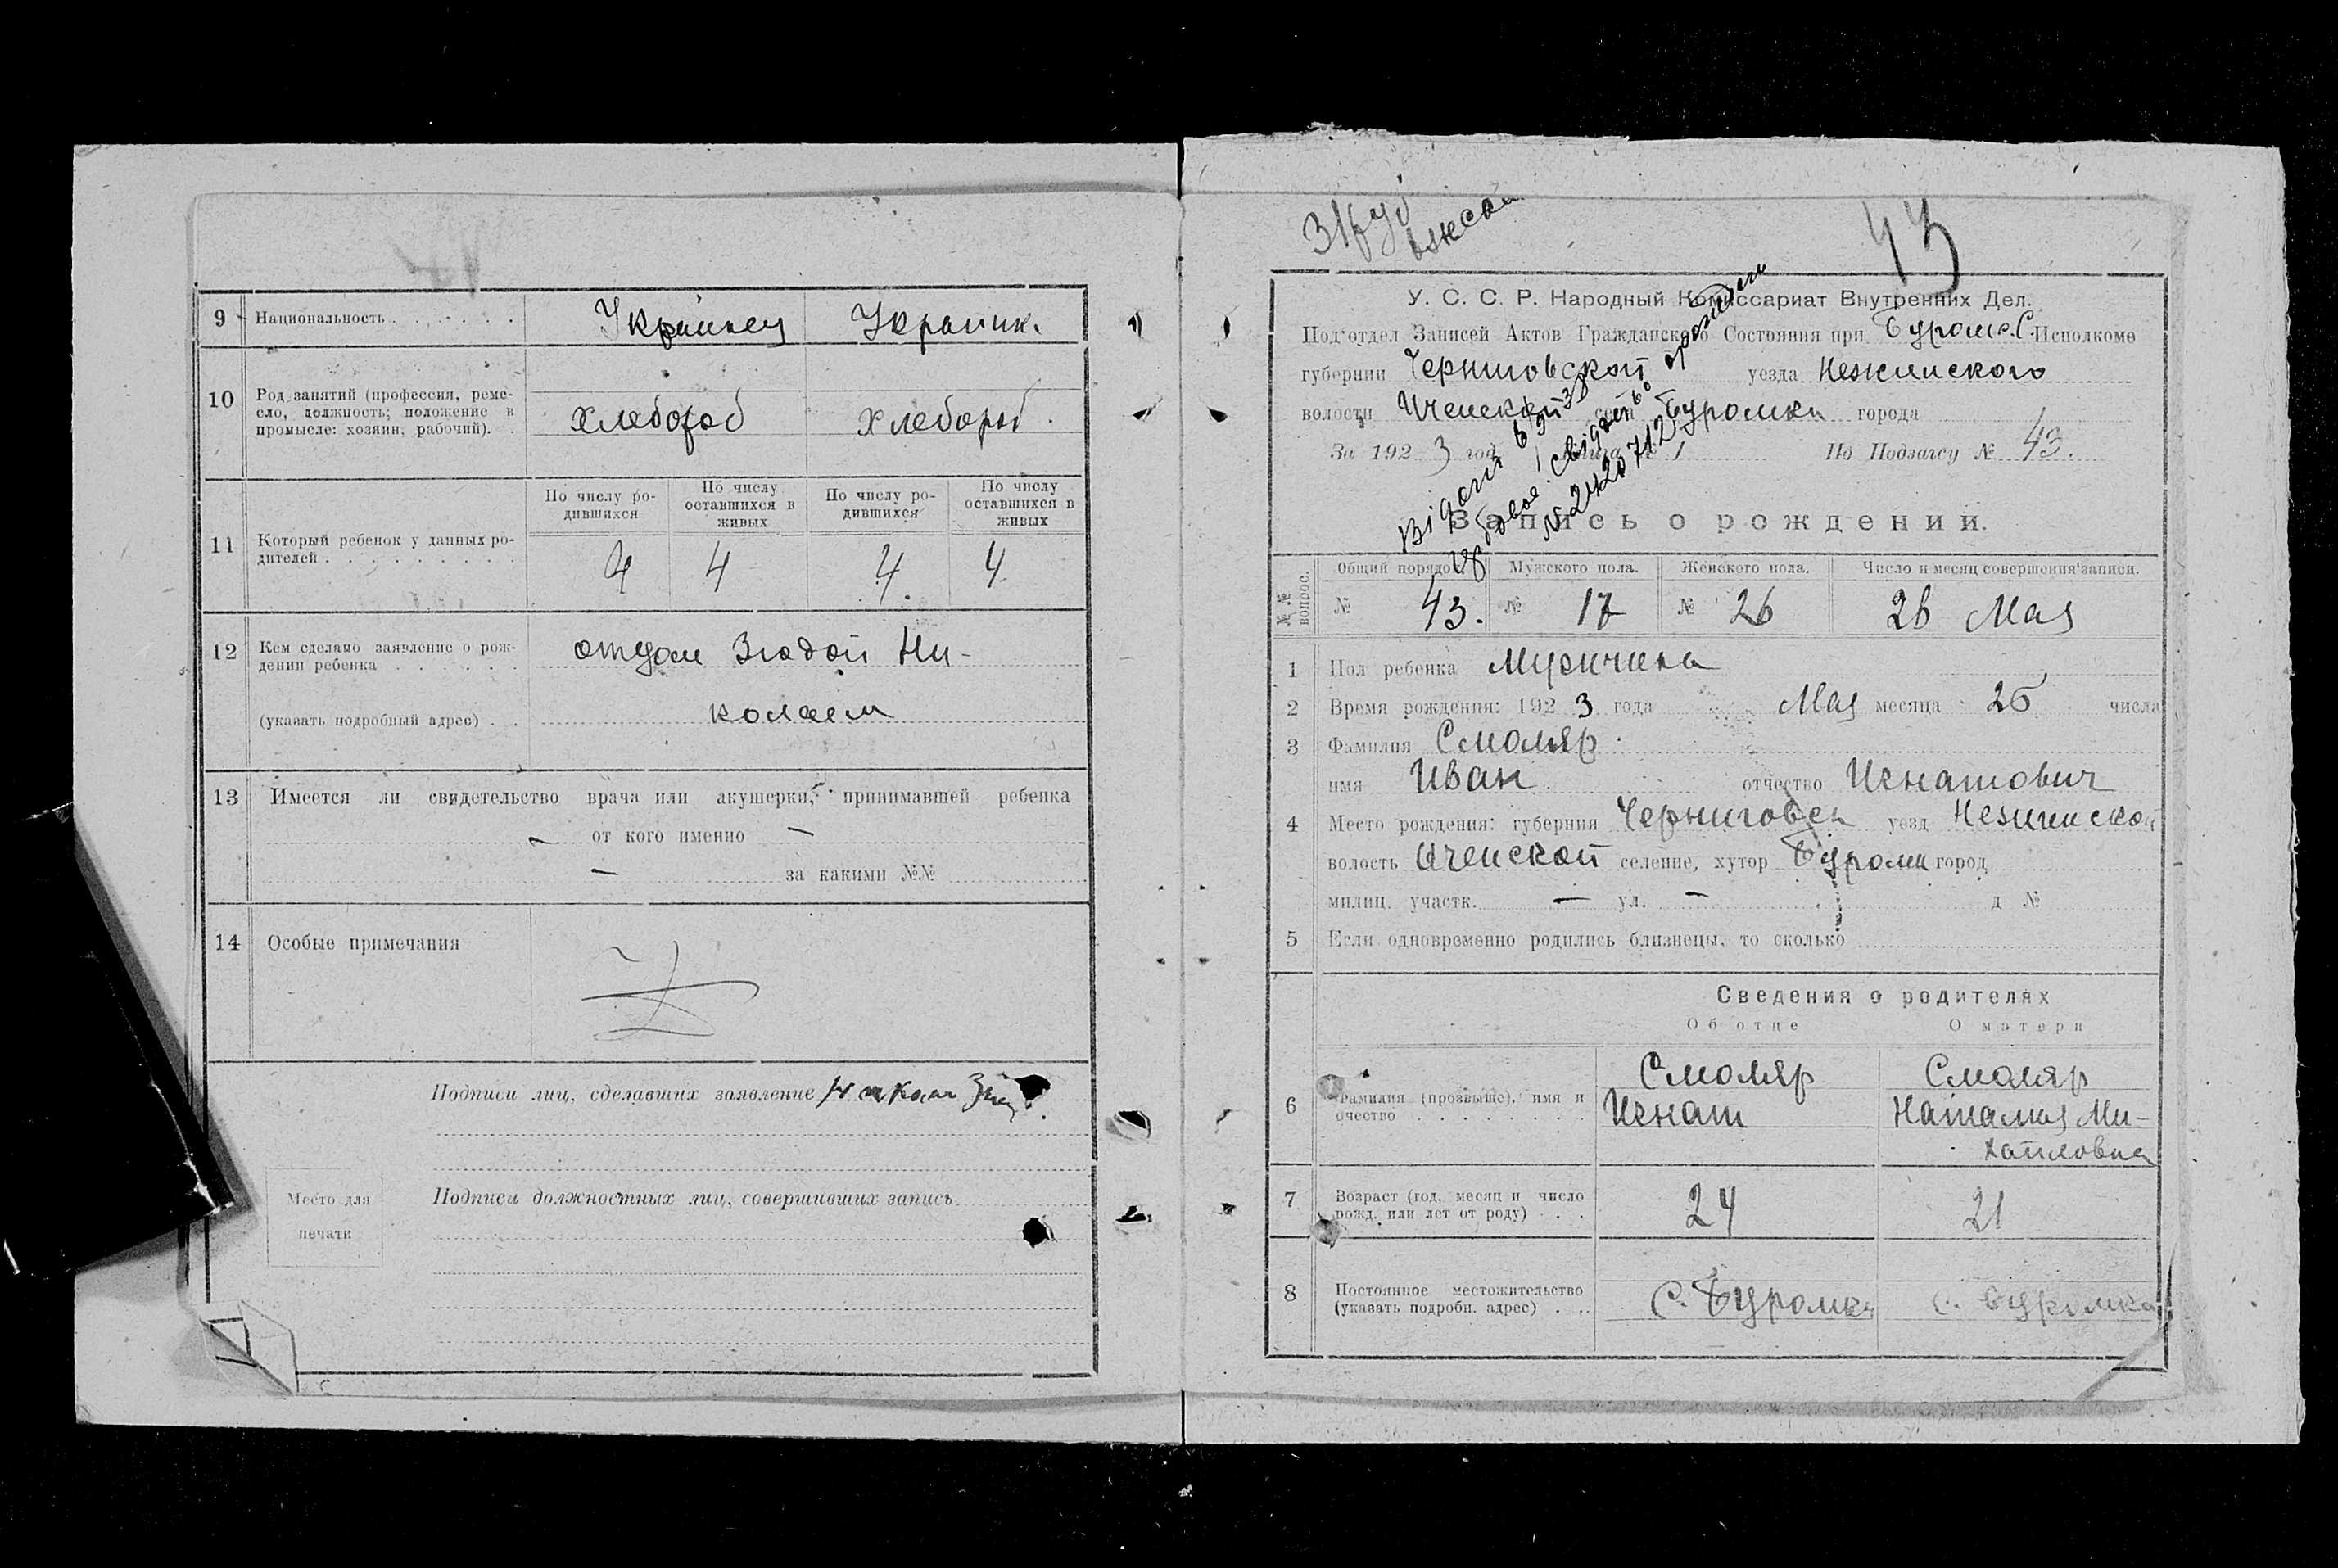 9 Национальность Украинец Украинк.
10 Род занятий (профессия, реме-
сло, должность; положение в
промысле: хозяин, рабочий).
Хлебороб Хлебороб
11 Который ребенок у данных ро-
дителей
По числу ро-
дившихся
По числу
оставшихся в
живых
По числу ро-
дившихся
По числу
оставшихся в
живых
4 4 4. 4
12 Кем сделано заявление о рож-
дении ребенка
отцом Ни-
(указать подробный адрес)
колаем
13 Имеется ли свидетельство врача или акушерки, принимавшей ребенка
— от кого именно —
— за какими №№
14 Особые примечания
Подписи лиц, сделавших заявление
Место для
печати
Подписи должностных лиц, совершивших запись
43
У. С. С. Р. Народный Комиссариат Внутренних Дел.
Под'отдел Записей Актов Гражданского Состояния при Буром.С. Исполкоме
губернии Черниговской уезда Нежинского
волости Иченской села Буромки города
За 1923 год 1 По Подзагсу № 43.
№ 2420712
Запись о рождении.
№№ вопрос.
Общий порядок. Мужского пола. Женского пола. Число и месяц совершения записи.
№ 43. № 17 № 26 26 Мая
1 Пол ребенка Мужчина
2 Время рождения: 1923 года Мая месяца 25 числа
3 Фамилия Смоляр
имя Иван отчество Игнатович
4 Место рождения: губерния Черниговск уезд Нежинской
волость Иченской селение, хутор Буромк город
милиц. участк. — ул. — д №
5 Если одновременно родились близнецы, то сколько
Сведения о родителях
Об отце О матери
6 Фамилия (прозвище), имя и
очество
Смоляр Смоляр
Игнат Наталия Ми-
хайловна
7 Возраст (год, месяц и число
рожд. или лет от роду)
24 21
8 Постоянное местожительство
(указать подробн. адрес)
с. Буромка с. Буромка